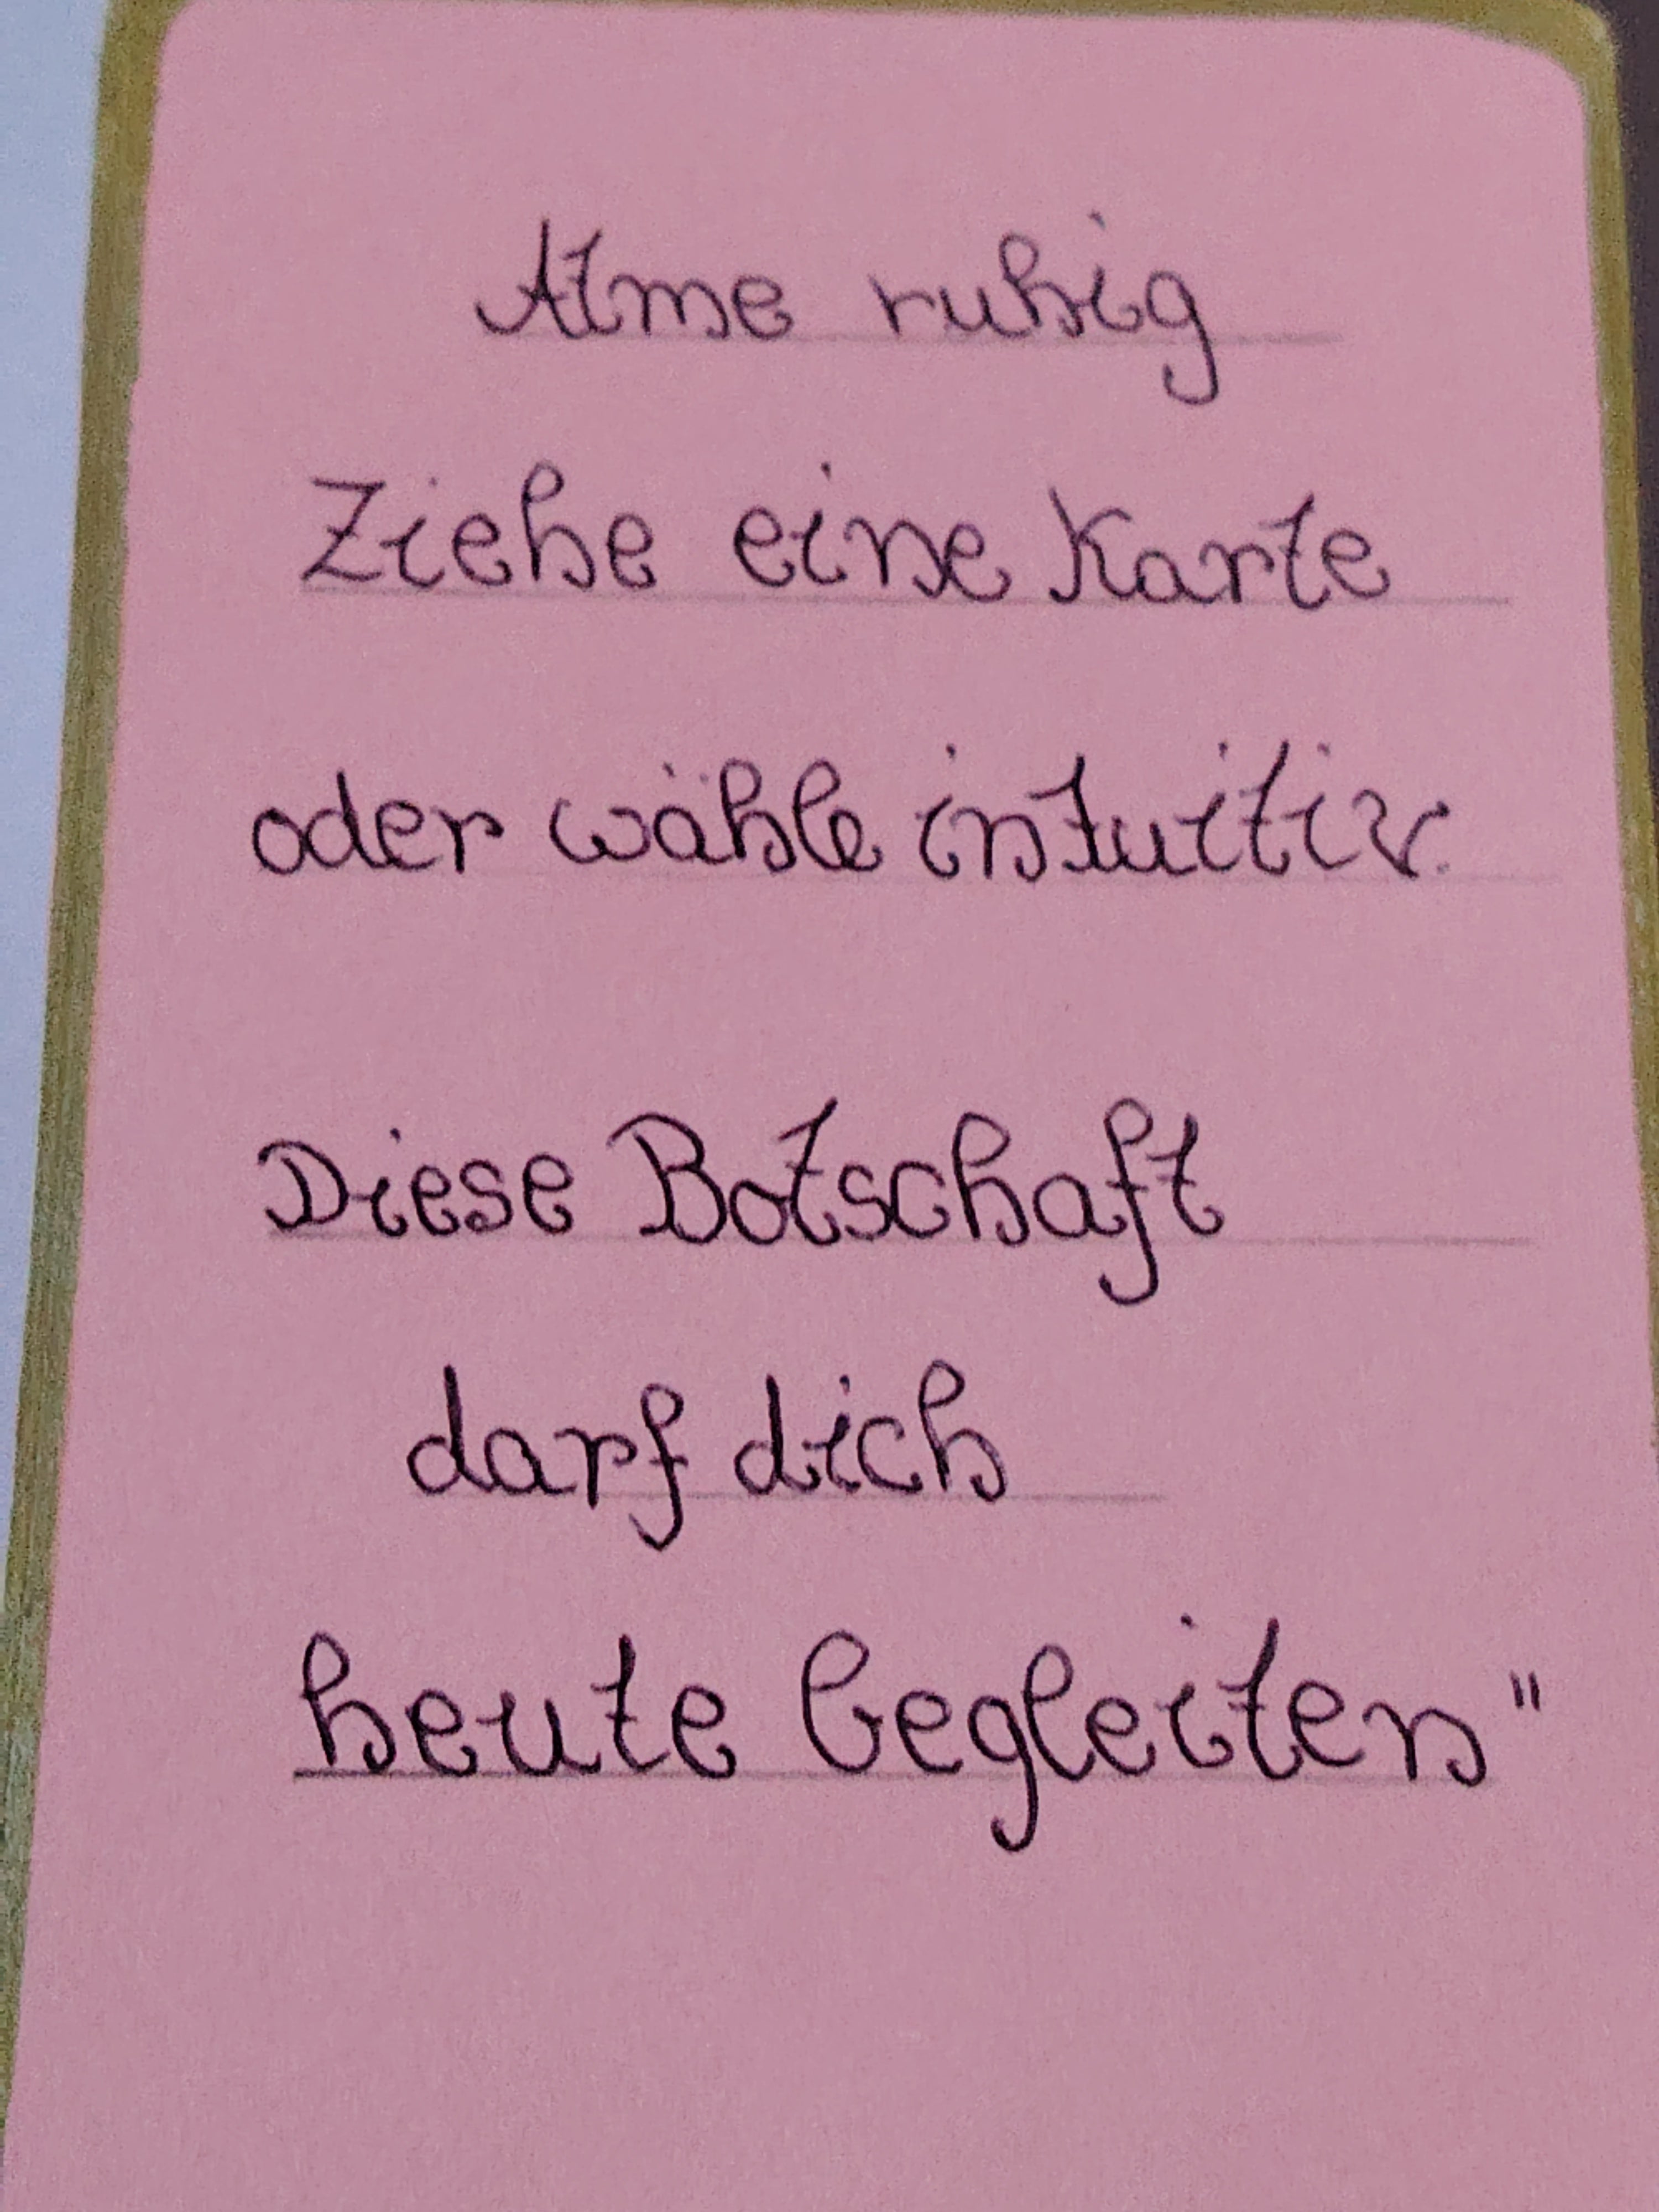 Atme ruhig
Ziehe eine Karte
oder wähle intuitiv.
Diese Botschaft
darf dich
heute begleiten"